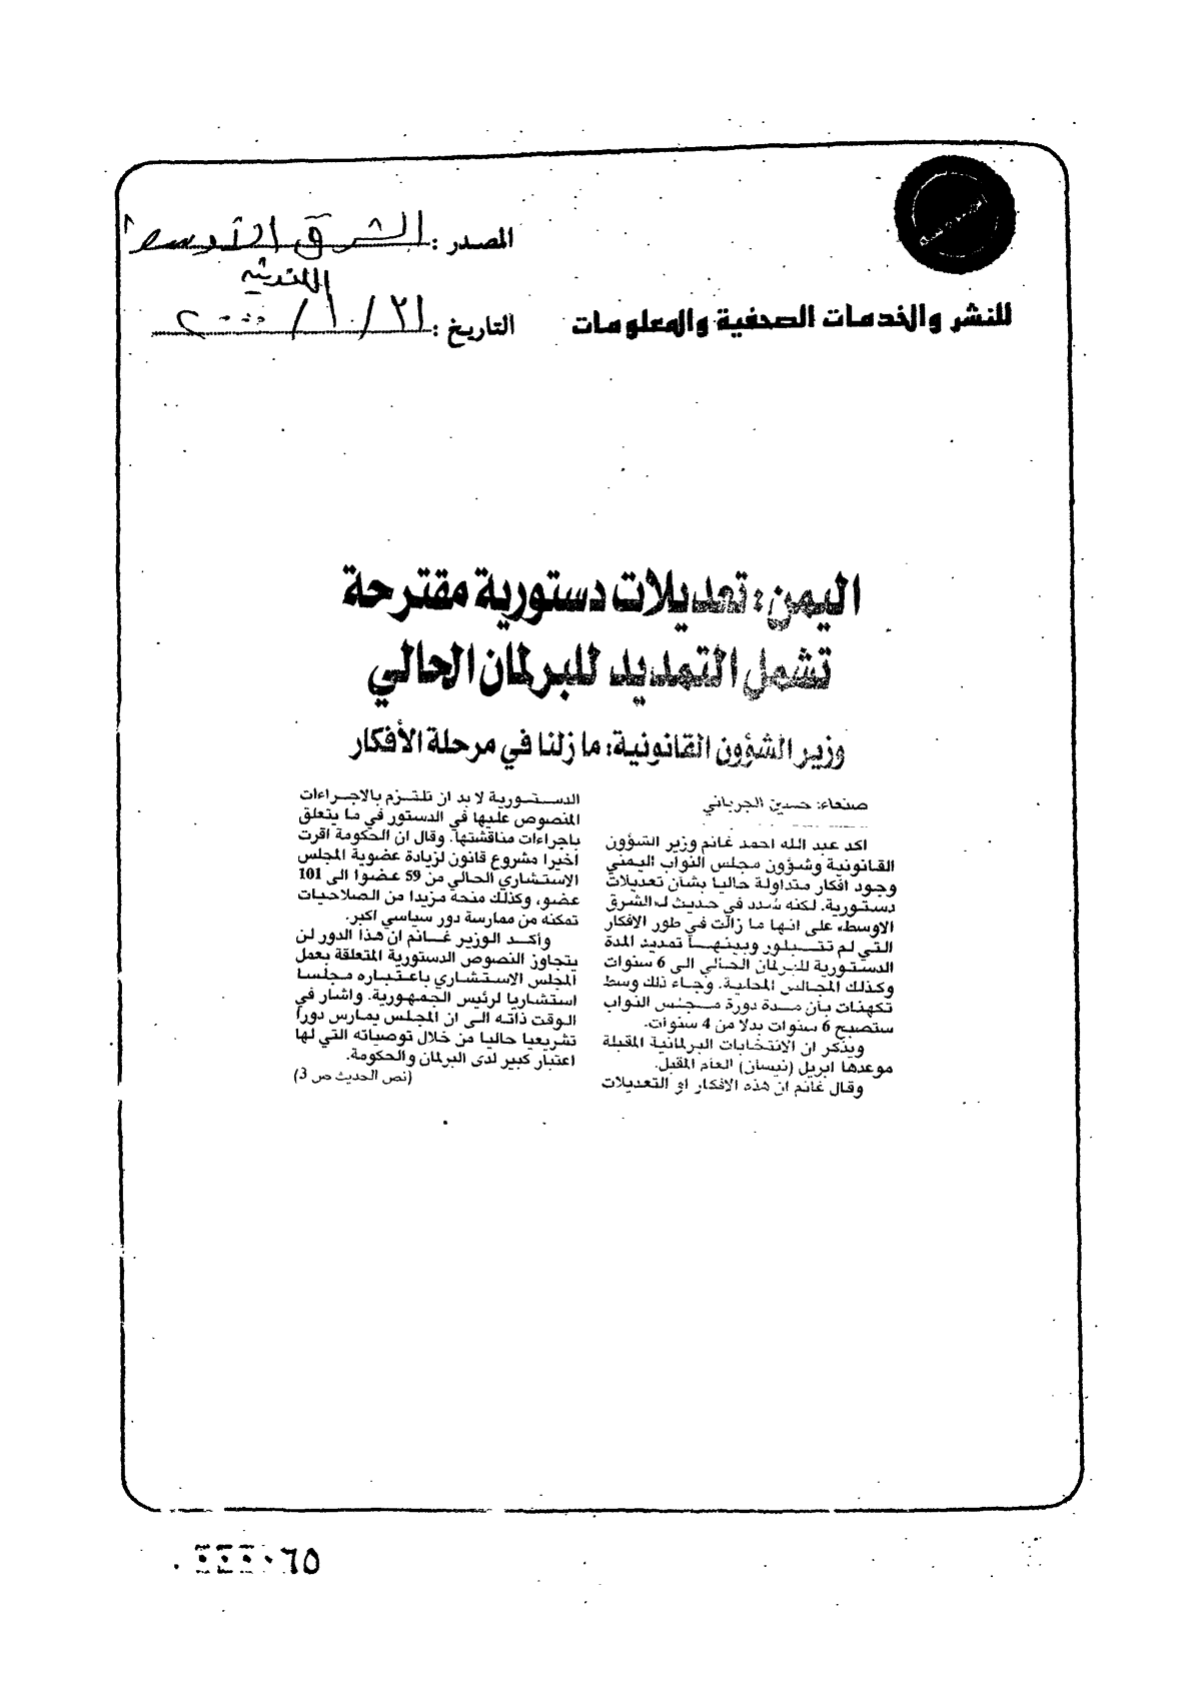 المصدر: الشرق الأوسط
اللندنية
للنشر والخدمات الصحفية والمعلومات
التاريخ: ٢١/١٠/٢٠٠٠
اليمن: تعديلات دستورية مقترحة
تشمل التمديد للبرلمان الحالي
وزير الشؤون القانونية: ما زلنا في مرحلة الأفكار
صنعاء: حسين الجرباني
اكد عبد الله احمد غانم وزير الشؤون
القانونية وشؤون مجلس النواب اليمني
وجود افكار متداولة حاليا بشأن تعديلات
دستورية. لكنه شدد في حديث لـ«الشرق
الاوسط» على انها ما زالت في طور الافكار
التي لم تتبلور وبينها تمديد المدة
الدستورية للبرلمان الحالي الى 6 سنوات
وكذلك المجالس المحلية. وجاء ذلك وسط
تكهنات بأن مدة دورة مجلس النواب
ستصبح 6 سنوات بدلا من 4 سنوات.
ويذكر ان الانتخابات البرلمانية المقبلة
موعدها ابريل (نيسان) العام المقبل.
وقال غانم ان هذه الافكار او التعديلات
الدستورية لا بد ان تلتزم بالاجراءات
المنصوص عليها في الدستور في ما يتعلق
باجراءات مناقشتها. وقال ان الحكومة اقرت
اخيرا مشروع قانون لزيادة عضوية المجلس
الاستشاري الحالي من 59 عضوا الى 101
عضو، وكذلك منحه مزيدا من الصلاحيات
تمكنه من ممارسة دور سياسي اكبر.
وأكد الوزير غانم ان هذا الدور لن
يتجاوز النصوص الدستورية المتعلقة بعمل
المجلس الاستشاري باعتباره مجلسا
استشاريا لرئيس الجمهورية. واشار في
الوقت ذاته الى ان المجلس يمارس دوراً
تشريعيا حاليا من خلال توصياته التي لها
اعتبار كبير لدى البرلمان والحكومة.
(نص الحديث ص 3)